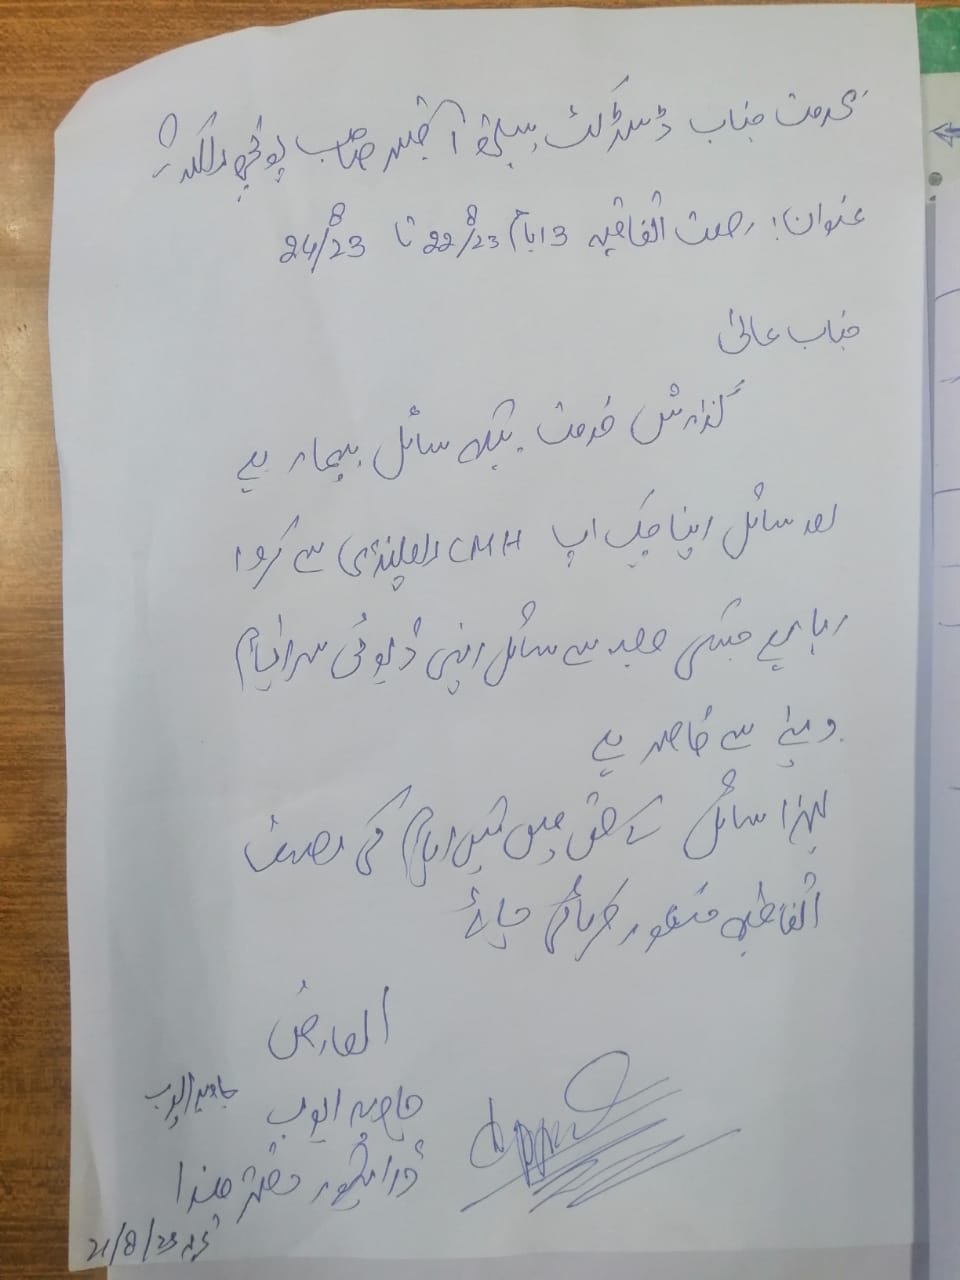 بخدمت جناب ڈسٹرکٹ ہیلتھ آفیسر صاحب پونچھ راولاکوٹ
عنوان: رخصت اتفاقیہ 3 ایام 22/8/23 تا 24/8/23
جناب عالیٰ
گذارش خدمت ہیکہ سائل بیمار ہے
اور سائل اپنا چیک اپ CMH راولپنڈی سے کروا
رہا ہے جسکی وجہ سے سائل اپنی ڈیوٹی سرانجام
دینے سے قاصر ہے
لہذا سائل کے حق میں تین ایام کی رخصت
اتفاقیہ منظور فرمائی جائے
العارض
جاوید ایوب
جاوید ایوب
ڈرائیور دفتر ھذا
21/8/23